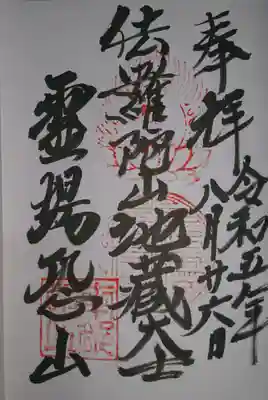 奉拝
令和五年
八月廿六日
伽羅陀山地蔵大士
霊場恐山